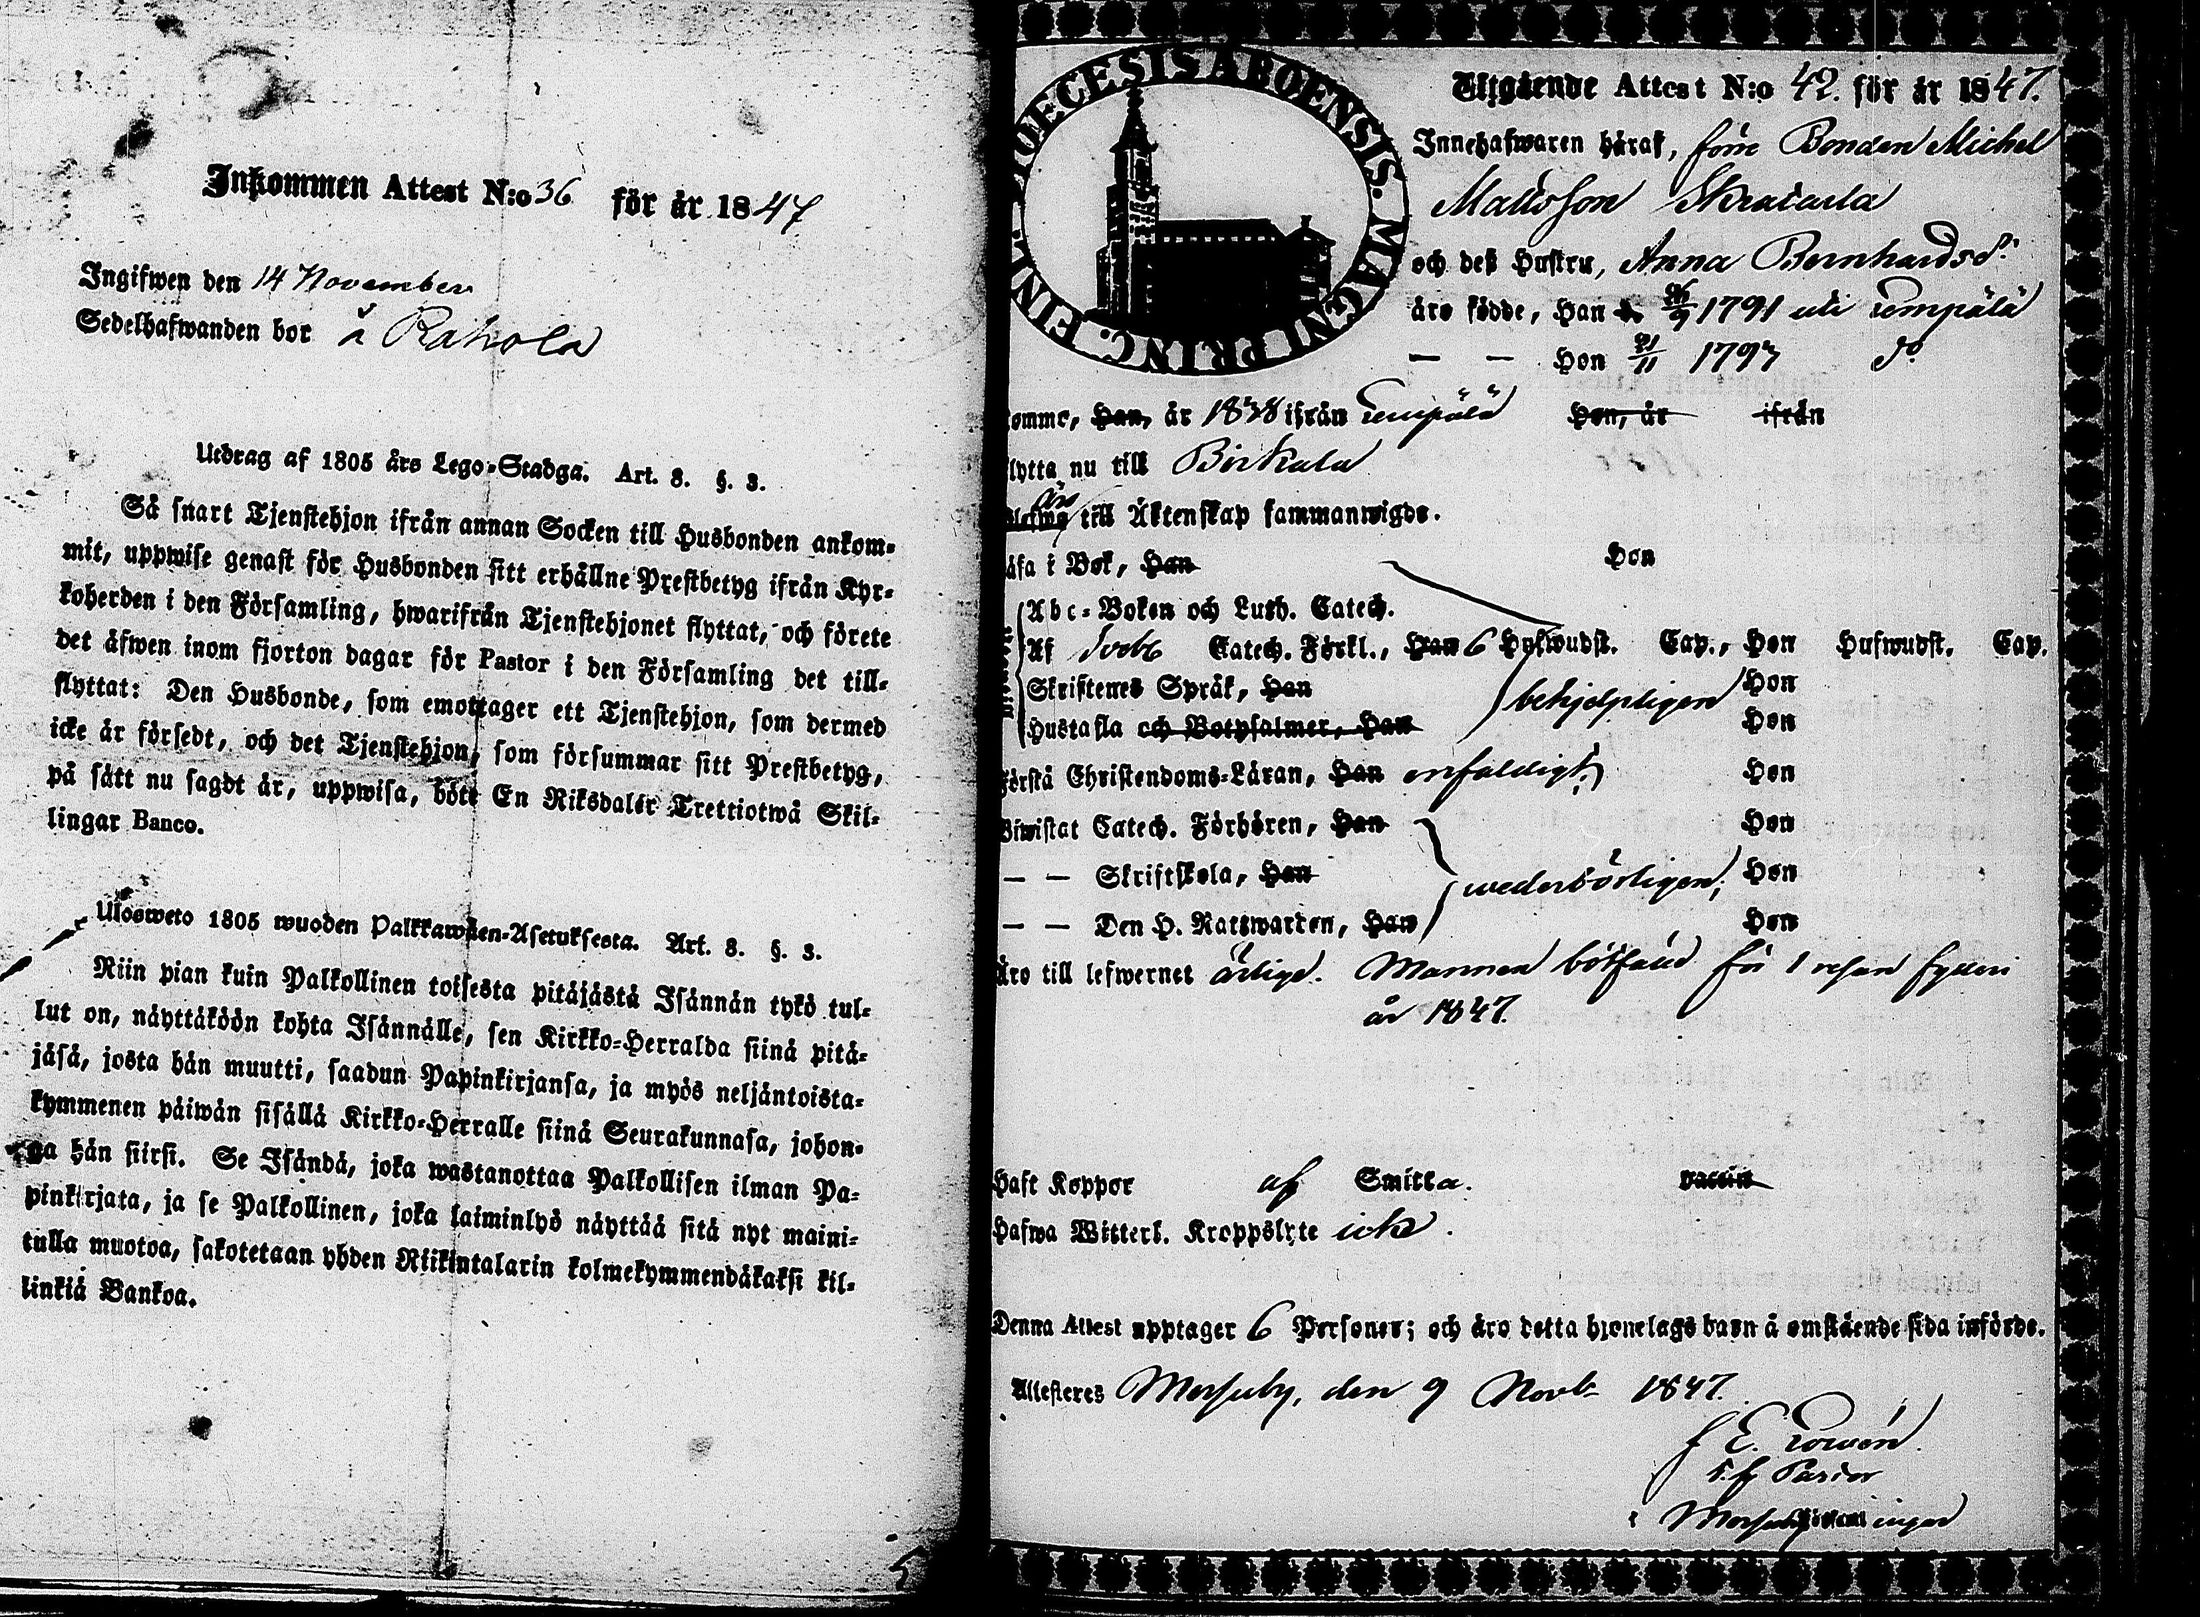 Inkommen Attest N:o 36 för år 1847
Ingifwen den 14 November
Sedelhafwanden bor å Rahola
Utdrag af 1805 års Lego-Stadga. Art. 8. §. 3.
Så snart Tjenstehjon ifrån annan Socken till Husbonden ankom-
mit, uppwise genast för Husbonden sitt erhållne Prestbetyg ifrån Kyr-
koherden i den Församling, hwarifrån Tjenstehjonet flyttat, och förete
det äfwen inom fjorton dagar för Pastor i den Församling det till-
flyttat: Den Husbonde, som emottager ett Tjenstehjon, som dermed
icke är försedt, och det Tjenstehjon, som försummar sitt Prestbetyg,
på sätt nu sagdt är, uppwisa, böte En Riksdaler Trettiotwå Skil-
lingar Banco.
Ulosweto 1805 wuoden Palkkawäen-Asetuksesta. Art. 8. §. 3.
Niin pian kuin Palkollinen toisesta pitäjästä Isännän tykö tul-
lut on, näyttäköön kohta Isännälle, sen Kirkko-Herralda siinä pitä-
jäsä, josta hän muutti, saadun Papinkirjansa, ja myös neljäntoista-
kymmenen päiwän sisällä Kirkko-Herralle siinä Seurakunnasa, johon-
ga hän siirsi. Se Isändä, joka wastanottaa Palkollisen ilman Pa-
pinkirjata, ja se Palkollinen, joka laiminlyö näyttää sitä nyt maini-
tulla muotoa, sakotetaan yhden Riikintalarin kolmekymmendäkaksi kil-
linkiä Bankoa.
DIOECESIS ABOENSIS. MAGNI PRINC. FINL.
Utgående Attest N:o 42. för år 1847.
Innehafwaren häraf, förre Bonden Michel
Mattsson
och deß Hustru, Anna Bernhardsd:r
äro födde, Han 1791 uti Lempälä
— — Hon 21/11 1797 d:o
komme, Han, år 1838 ifrån Lempälä Hon, år ifrån
flytta nu till Birkala
äro till Äktenskap sammanwigde.
läsa i Bok, Han Hon
Abc-Boken och Luth. Catech.
Af Svebi Catech. Förkl., Han 6 Hufwudst. Cap., Hon Hufwudst. Cap.
Skriftenes Språk, Han behjelpligen Hon
Hustafla och Botpsalmer, Han Hon
Förstå Christendoms-Läran, Han enfaldigt; Hon
Biwistat Catech. Förhören, Han Hon
— — Skriftskola, Han wederbörligen; Hon
— — Den H. Nattwarden, Han Hon
Äro till lefwernet ärlige. Mannen bötfäld för 1 resan fylleri
år 1847.
Haft Koppor af Smitta. vaccin
Hafwa Witterl. Kroppslyte icke.
Denna Attest upptager 6 Personer; och äro detta hjonelags barn å omstående sida införde.
Attesteres Messuby, den 9 Novb. 1847.
E.
Pastor